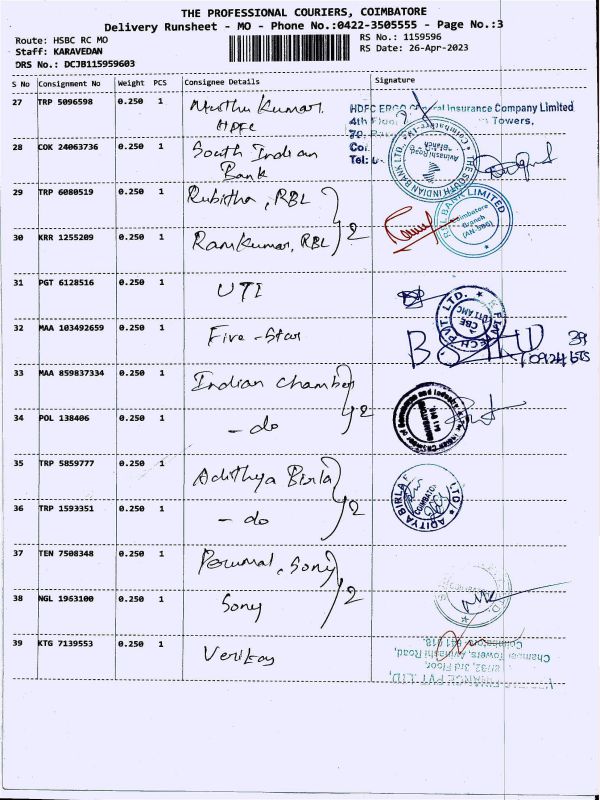 THE PROFESSIONAL COURIERS, COIMBATORE
Delivery Runsheet - MO - Phone No.:0422-3505555 - Page No.:3
Route: HSBC RC MO
Staff: KARAVEDAN
DRS No.: DCJB115959603
RS No.: 1159596
RS Date: 26-Apr-2023
S No Consignment No Weight PCS Consignee Details Signature
27 TRP 5096598 0.250 1 Muthu Kumar
HDFC
HDFC ERGO General Insurance Company Limited
4th Floor Towers,
28 COK 24063736 0.250 1 South Indian
Bank
THE SOUTH INDIAN BANK LTD.,
Avinashi Road
Branch
29 TRP 6080519 0.250 1 Rubitha, RBL
RBL BANK LIMITED
Coimbatore
Branch
30 KRR 1255209 0.250 1 Ramkumar, RBL 2
31 PGT 6128516 0.250 1 UTI
32 MAA 103492659 0.250 1 Five-Star
33 MAA 859837334 0.250 1 Indian Chamber
34 POL 138406 0.250 1 - do 2
35 TRP 5859777 0.250 1 Adithya Birla
36 TRP 1593351 0.250 1 - do 2
37 TEN 7508348 0.250 1 Perumal, Sony
38 NGL 1963100 0.250 1 Sony 2
39 KTG 7139553 0.250 1
Coimbatore - 641 018.
Chamber Towers, Avinashi Road,
3rd Floor,